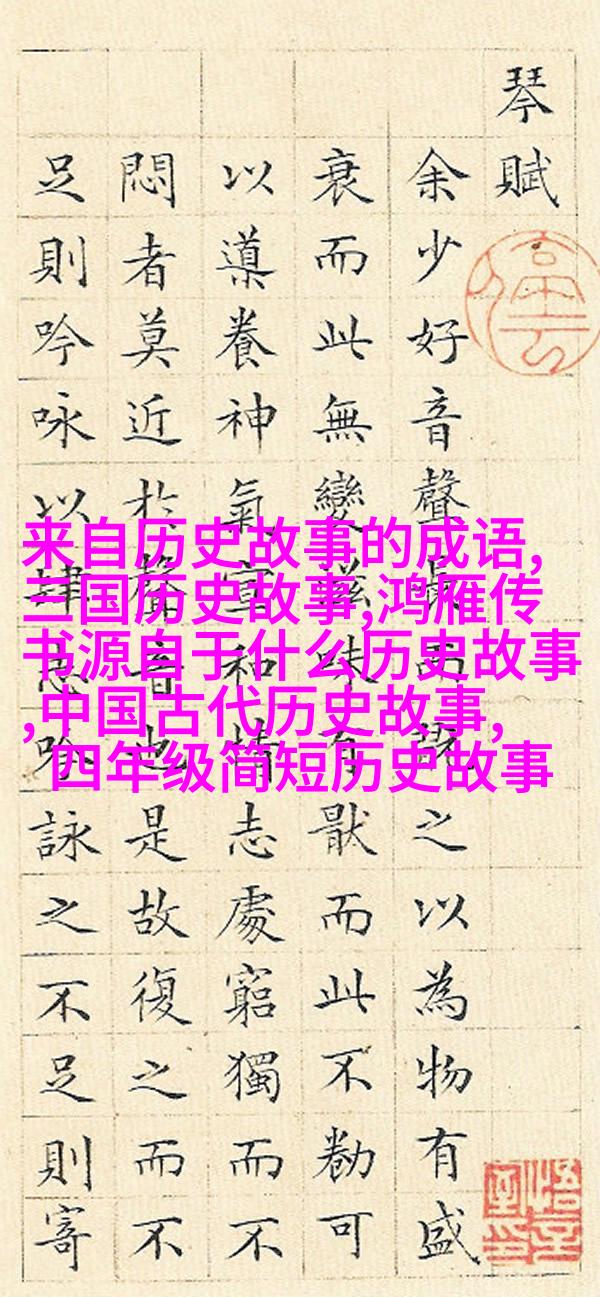 琴賦
余少好音聲長而翫之以為物有盛
衰而此無變滋味有猒而此不勌可
以導養神氣宣和情志處窮獨而不
悶者莫近於聲音也是故復之而不
足則吟咏以肆志吟詠之不足則寄
来自历史故事的成语,
三国历史故事,鸿雁传
书源自于什么历史故事
,中国古代历史故事,
四年级简短历史故事